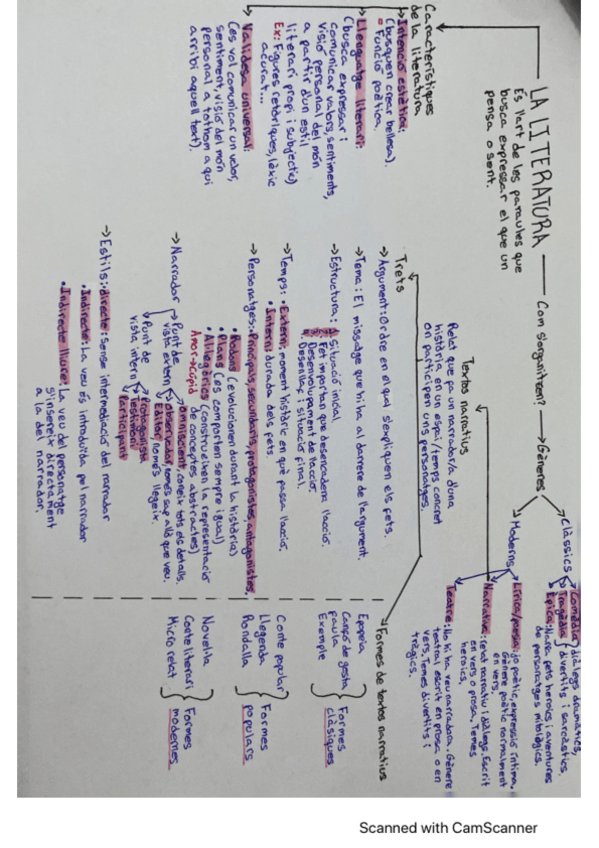 LA LITERATURA
Es l'art de les paraules que
busca expressar el que un
pensa o sent.
Com s'organitzen?
Gèneres
Clàssics
Comèdia: diàlegs dramàtics,
Tragèdia divertits i sarcàstics.
Èpica: Narra fets heroics i aventures
de personatges mitològics.
Moderns
Lírica/poesia: jo poètic, expressió íntima.
Gènere poètic normalment
en vers.
Narrativa: relat narratiu i diàlegs. Escrit
en vers o prosa. Temes
heroics.
Teatre: No hi ha veu narradora. Gènere
teatral escrit en prosa o en
vers. Temes divertits i
tràgics.
Característiques
de la literatura
Intenció estètica:
(busquen crear bellesa).
= Funció poètica.
Llenguatge literari:
(busca expressar i
comunicar valors, sentiments,
visió personal del món
a partir d'un estil
literari propi i subjectiu)
Ex: Figures retòriques, lèxic
acurat...
Validesa universal:
(es vol comunicar un valor,
sentiment, visió del món
personal a tothom a qui
arribi aquell text).
Textos narratius
Relat que fa un narrador/a d'una
història en un espai/temps concret
on participen uns personatges.
Trets
→Argument: Ordre en el qual s'expliquen els fets.
→Tema: El missatge que hi ha al darrere de l'argument.
→Estructura: 1. Situació inicial.
2. Fet important que desencadena l'acció.
3. Desenvolupament de l'acció.
4. Desenllaç i situació final.
→Temps: •Extern: moment històric en que passa l'acció.
•Intern: durada dels fets.
→Personatges: Principals, secundaris, protagonistes, antagonistes,
•Rodons (evolucionen durant la història)
•Plans (es comporten sempre igual)
•Al·legòrics (construeixen la representació
Amor→cupid de conceptes abstractes)
→Narrador →Punt de
vista extern
Omniscient: coneix tots els detalls.
Observador: només sap allò que veu.
Editor: només llegeix.
Punt de
vista intern
Protagonista
Testimoni
Participant
→Estils: directe: sense intermediació del narrador
•Indirecte: La veu és introduïda pel narrador
•Indirecte lliure: La veu del personatge
s'insereix directament
a la del narrador.
Formes de textos narratius
Epopeia
Cançó de gesta
Faula
Exemple
Formes
clàssiques
Conte popular
Llegenda
Rondalla
Formes
populars
Novel·la
Conte literari
Micro relat
Formes
modernes
Scanned with CamScanner